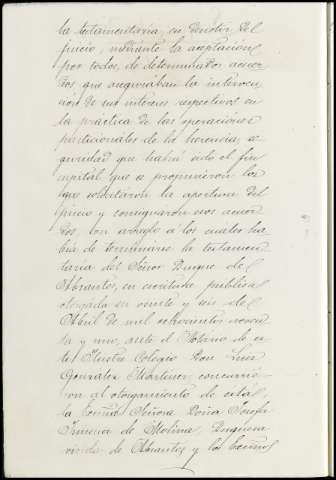 la testamentaria, en
juicio, mediante la aceptacion
por todos, de determinados acuer
dos, que aseguraban la interven
cion de sus intereses respectivos en
la práctica de las operaciones
particionales de la herencia, se
guridad que habrá sido el fin
capital que se propusieron los
que solicitaron la apertura del
juicio y consignaron esos acuer
dos, con arreglo a los cuales ha
bia de terminarse la testamen
taría del Señor Duque de
Abrantes, en escritura publica
otorgada en veinte y seis de
Abril de mil ochocientos noven
ta y uno, ante el Notario de es
te Ilustre Colegio Don
Gonzalez Martinez, concurrie
ron al otorgamiento de esta
la Excma Señora Doña Josefa
Jimena de Molina, Duquesa
viuda de Abrantes y los Excmos